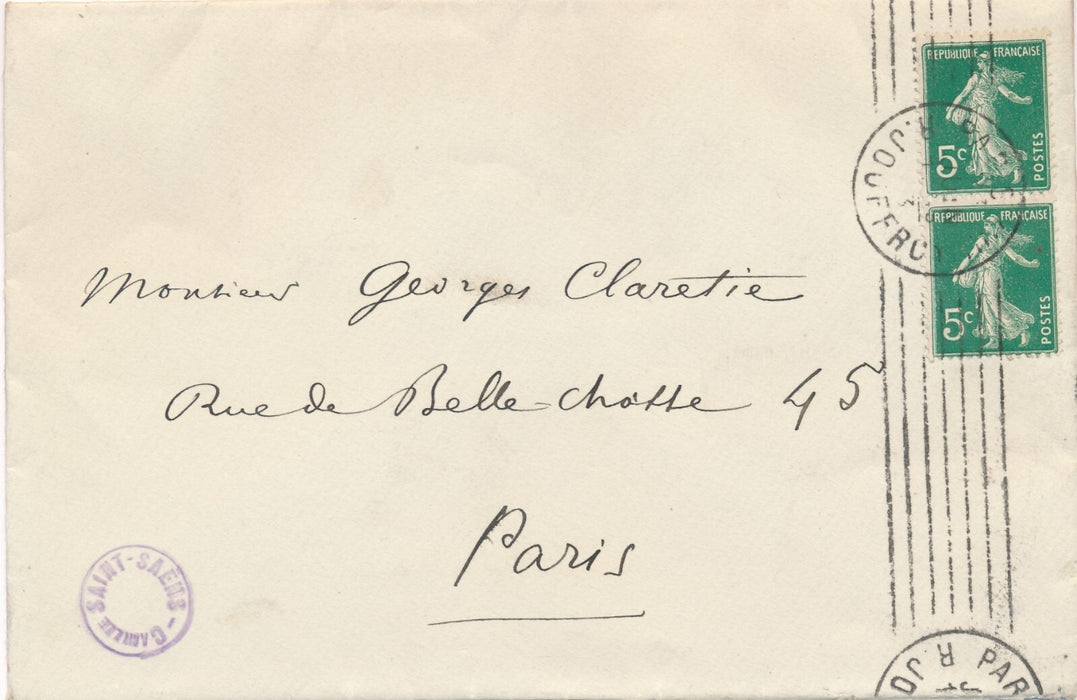 RÉPUBLIQUE FRANÇAISE
5c POSTES
RÉPUBLIQUE FRANÇAISE
5c POSTES
R. JOUFFROY
Monsieur Georges Claretie
Rue de Belle-chatte 45
Paris
CAMILLE SAINT-SAËNS
PAR
R. JO